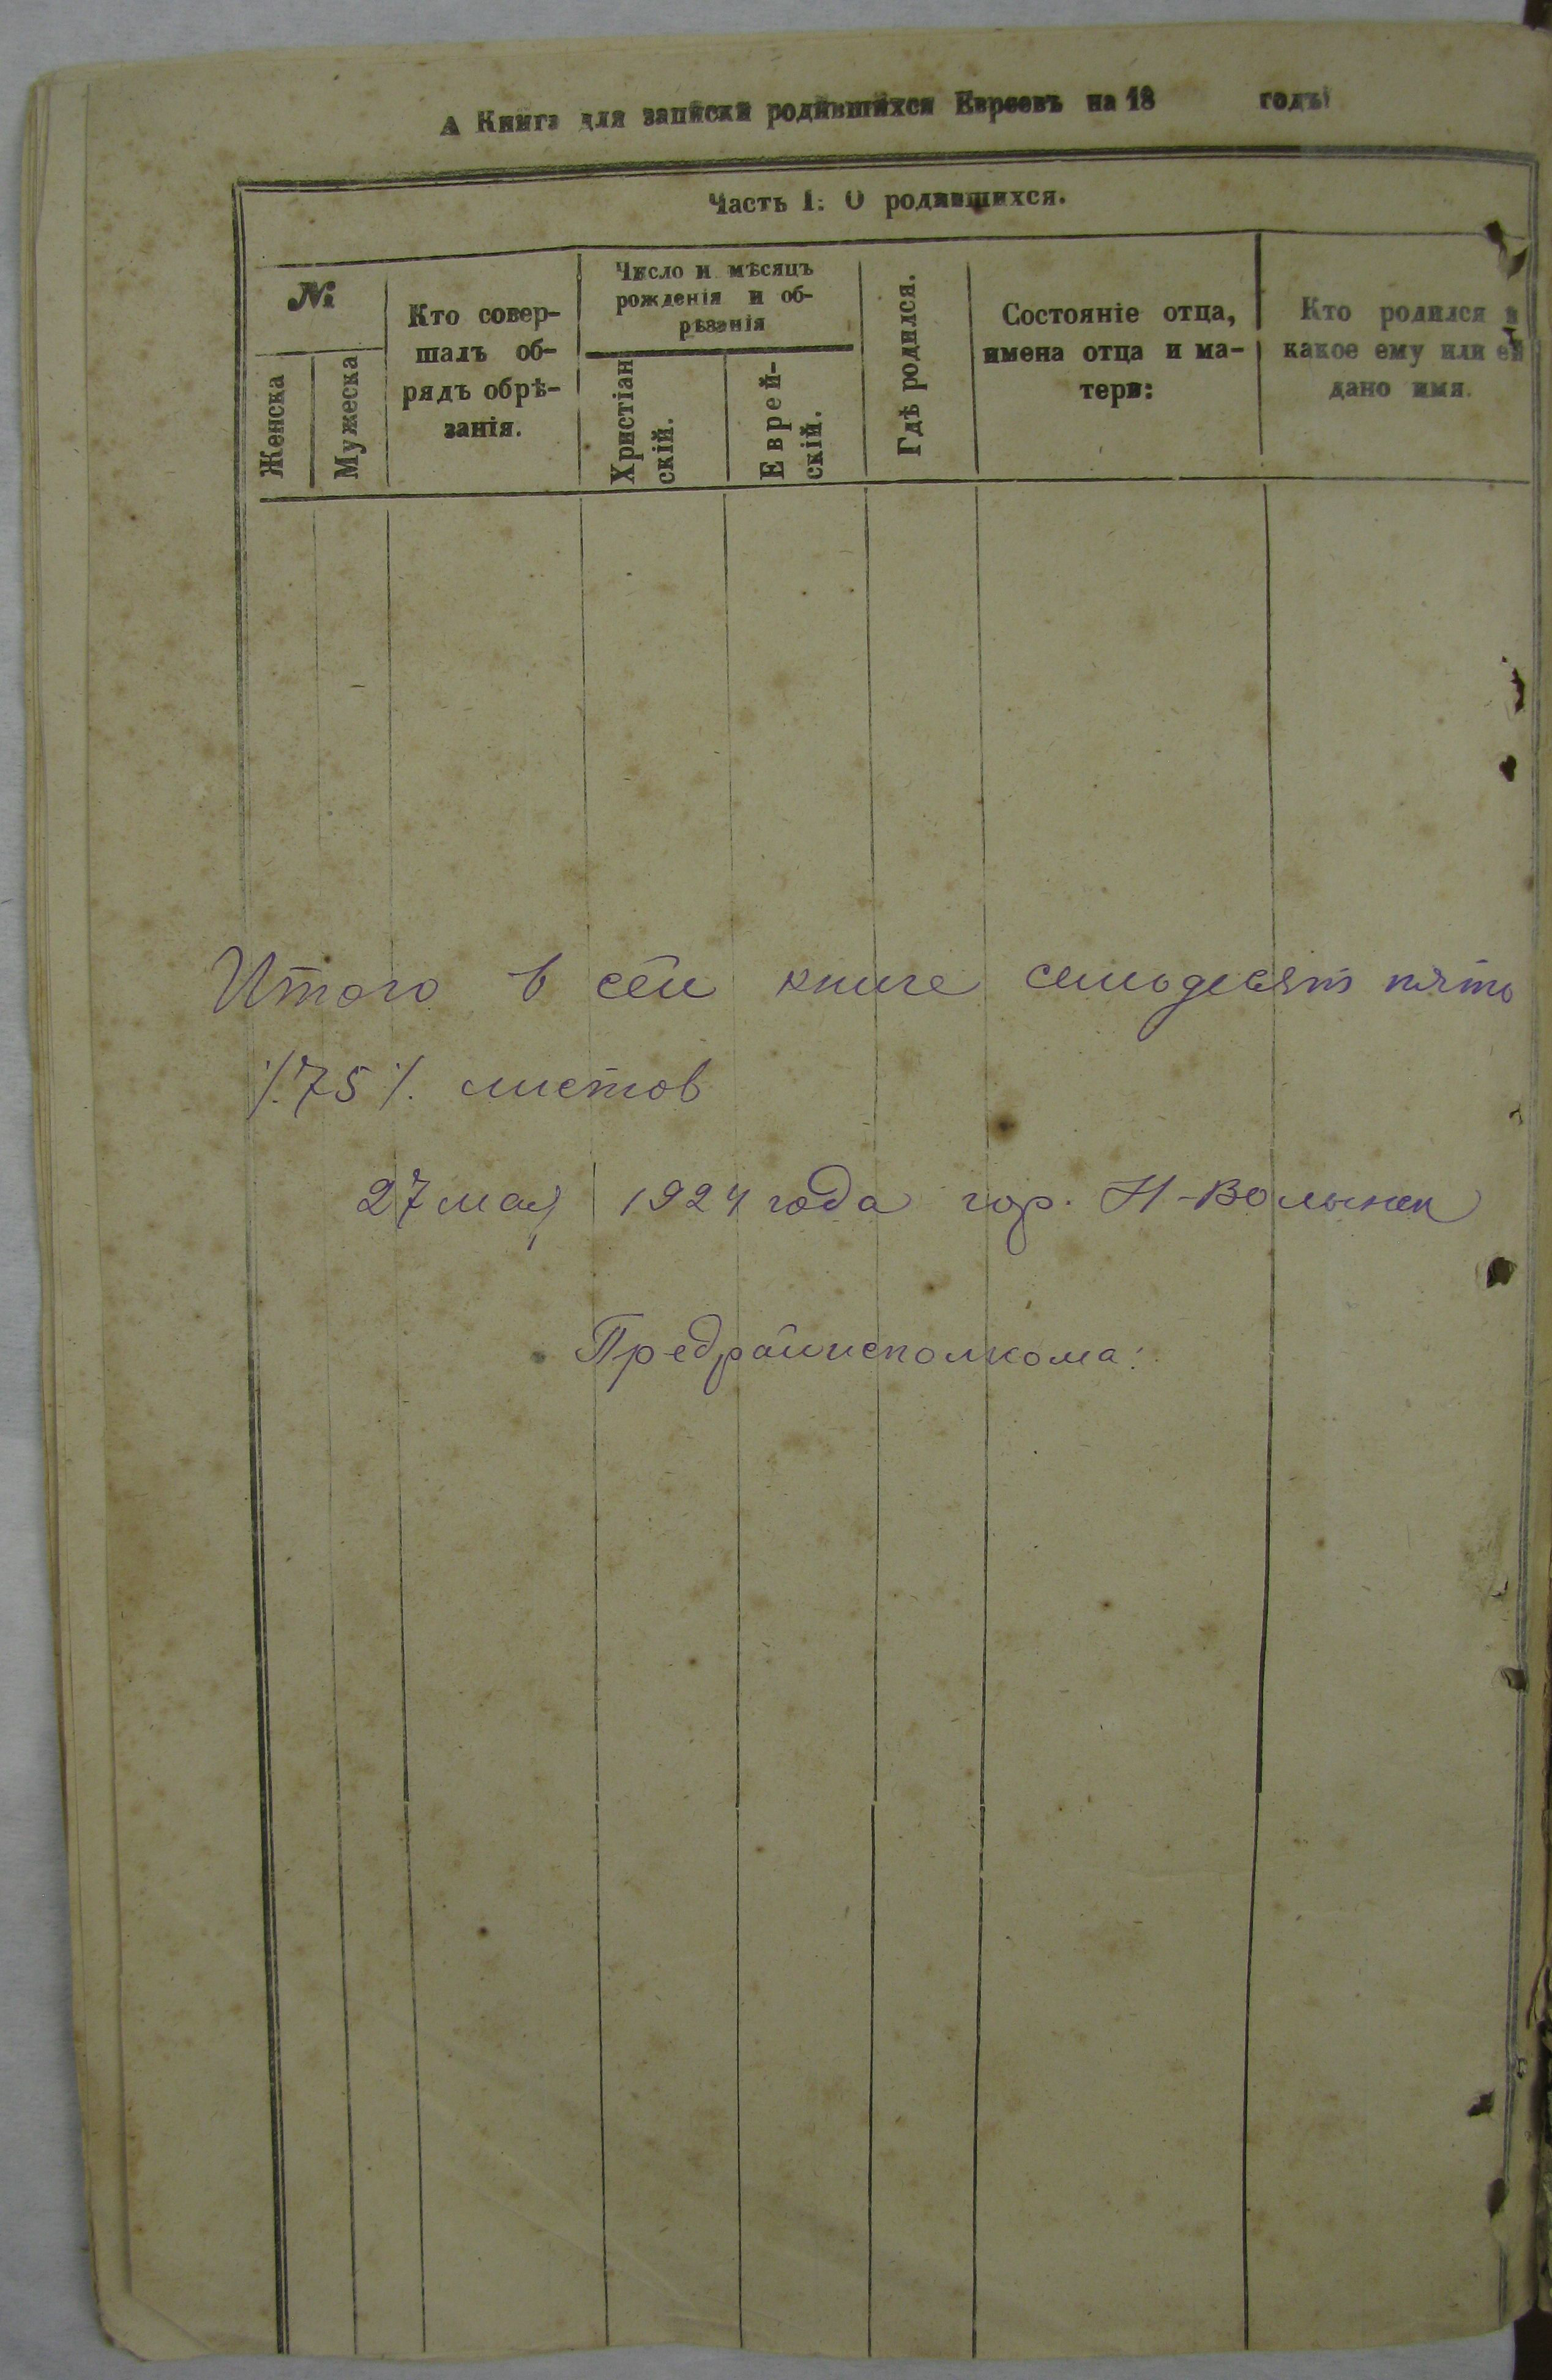 А Книга для записки родившихся Евреевъ на 18 годъ
Часть I. О родившихся.
№
Женска
Мужеска
Кто совер-
шалъ об-
рядъ обрѣ-
занія.
Число и мѣсяцъ
рожденія и об-
рѣзанія
Христіан
скій.
Еврей-
скій.
Гдѣ родился.
Состояніе отца,
имена отца и ма-
тери:
Кто родился и
какое ему или ей
дано имя.
Итого в сей книге семьдесят пять
/.75/. листов
27 мая 1924 года гор. Н-Волынск
Предрайисполкома: